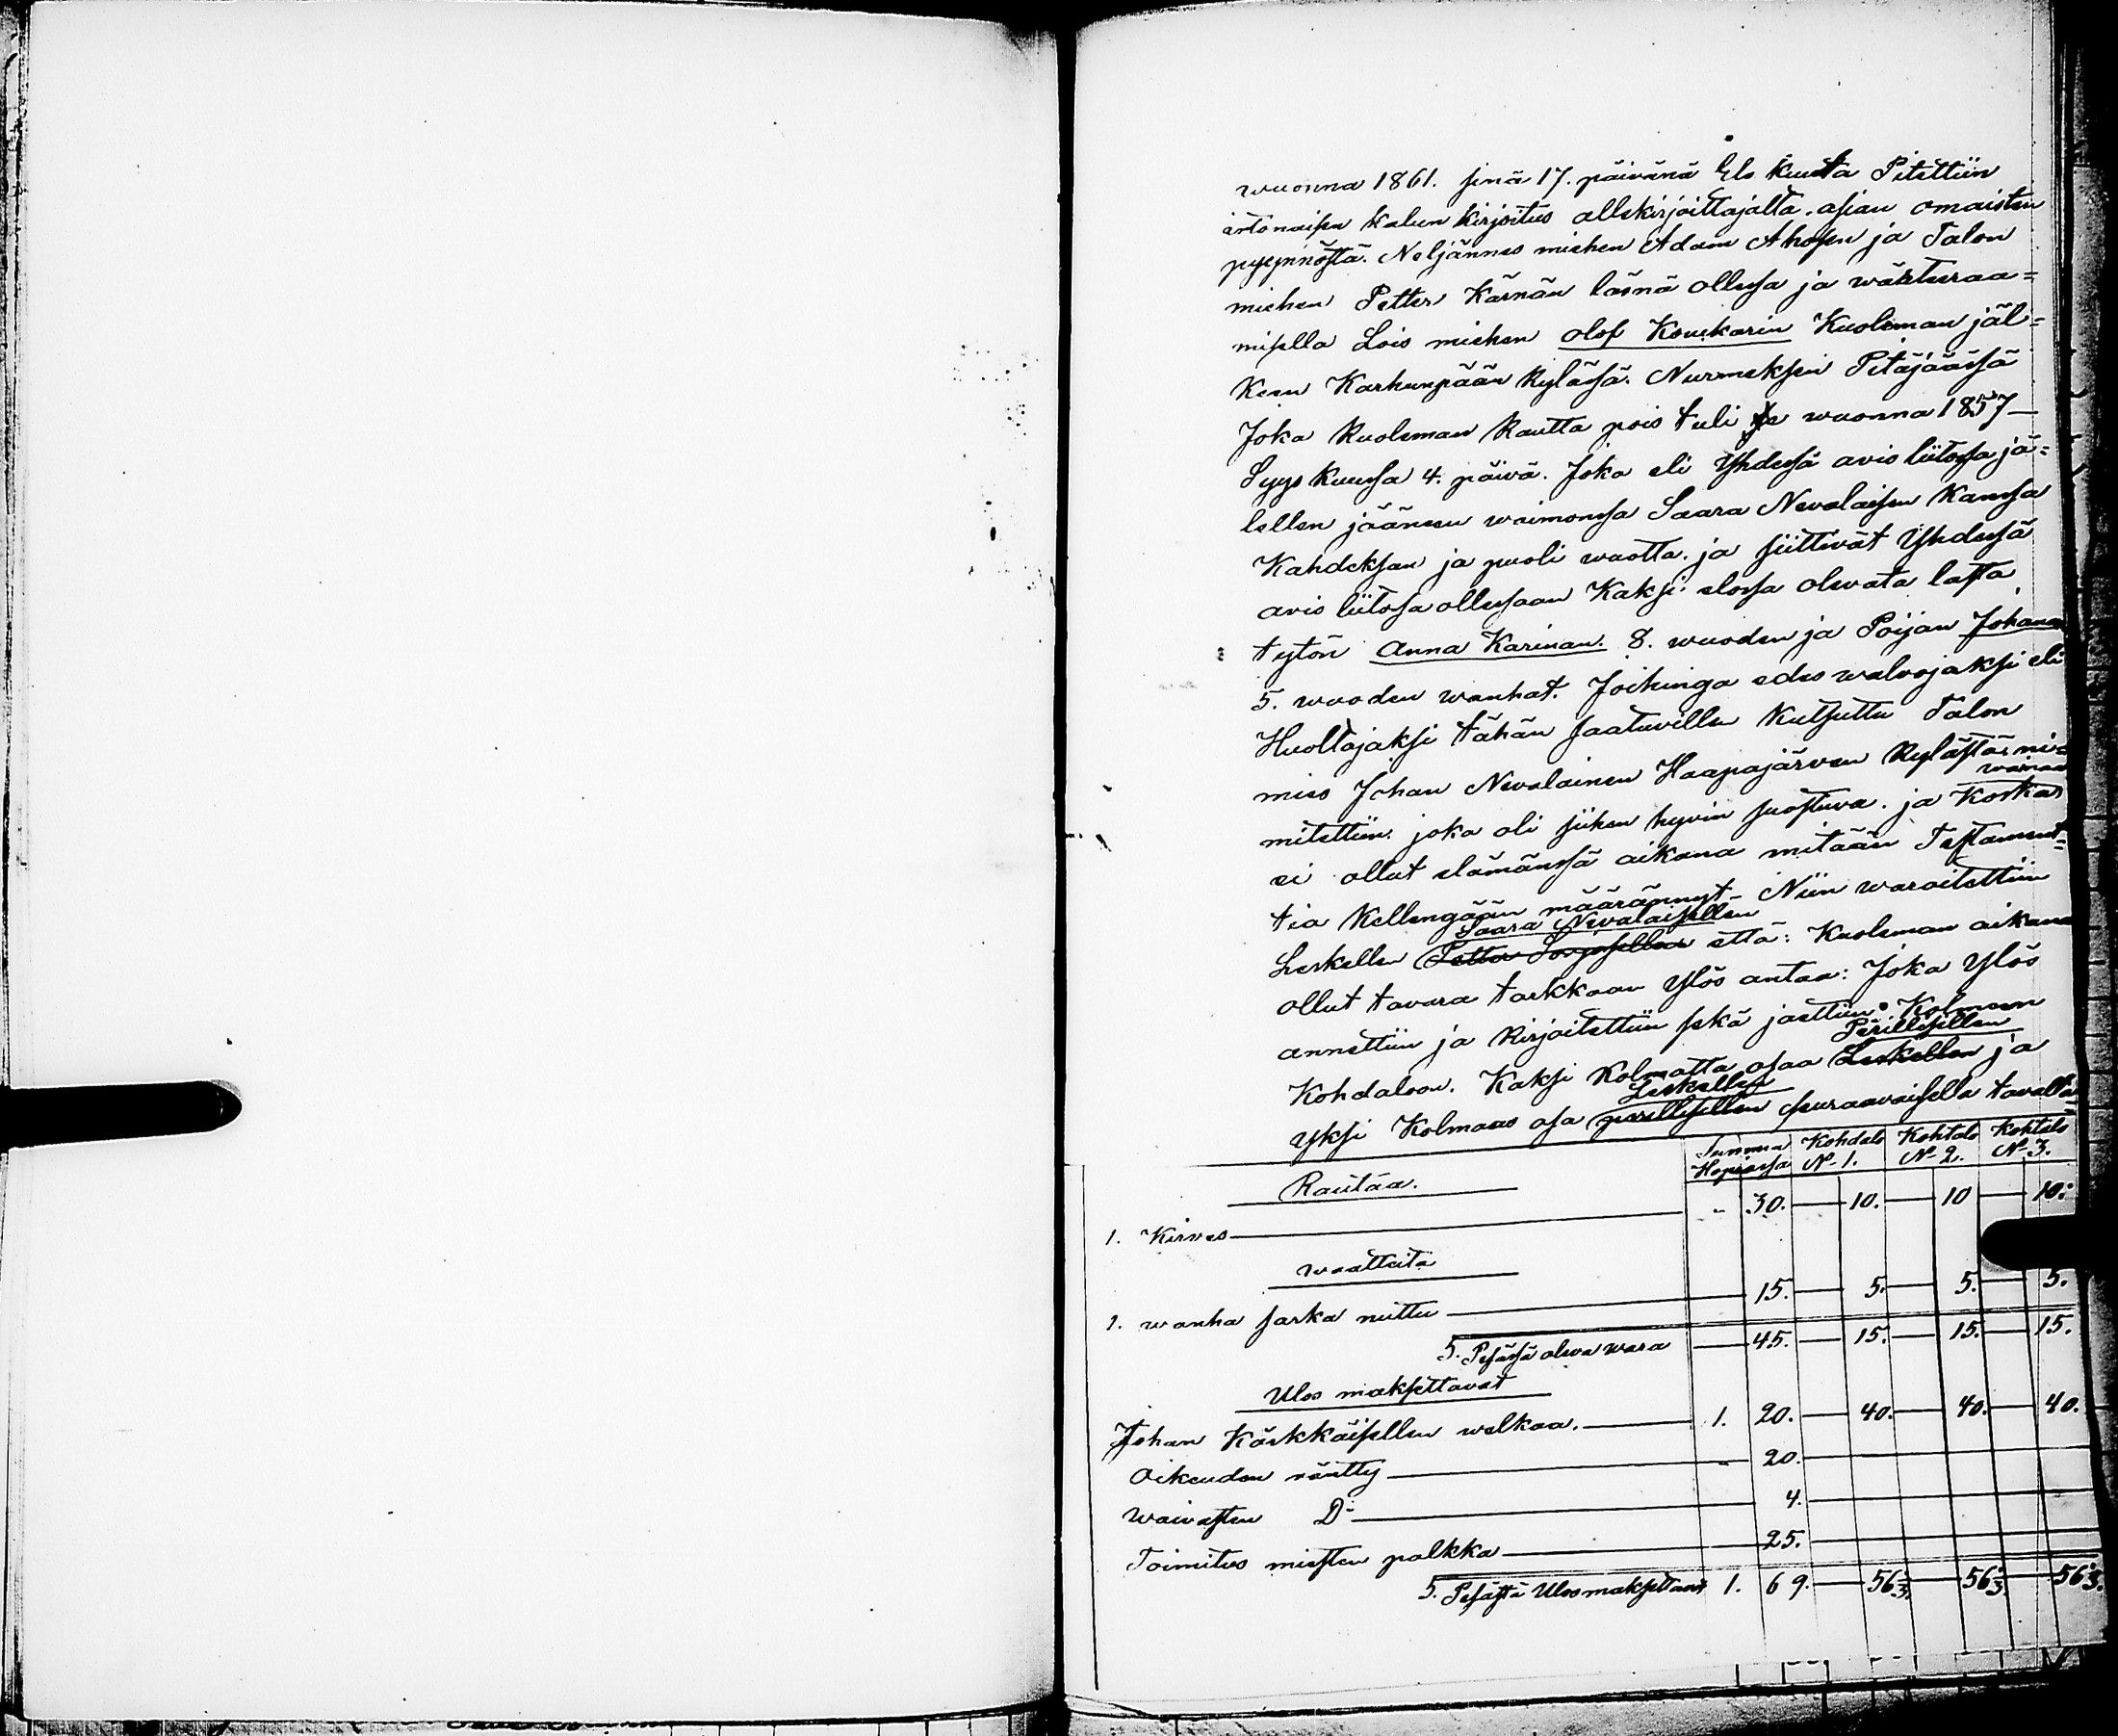 wuonna 1861. sinä 17. päivänä Elo kuuta Pitettiin
irtonaisen kalun kirjoitus allekirjoittajalta. asian omaisten
pyynnöstä. Neljännes miehen Adam Ahosen ja Talon
miehen Petter Kärnän läsnä ollessa ja wärteeraa=
misella Lois miehen Olof Koukarin Kuoleman jäl=
Keen Karhunpään Kylässä. Nurmeksen Pitäjäässä
Joka Kuoleman Kautta pois tuli wuonna 1857—
Syys Kuussa 4. päivä. Joka eli Yhdessä avio liitossa jä=
lellen jääneen waimonsa Saara Nevalaisen Kanssa
Kahdeksan ja puoli wuotta. ja siittivät Yhdessä
avio liitossa ollessaan Kaksi elossa olevata lasta
tytön Anna Karinan. 8. wuoden ja Poijan Johanan
5. wuoden wanhat. Joihinga edes walvojaksi eli
Huoltajaksi tähän saatuvillen Kutsuttu Talon
mies Johan Nevalainen Haapajärven Kylästä ni=
mitettiin. joka oli siihen hyvin suostuva. ja Koska wainaa
ei ollut elämänsä aikana mitään Testament=
tia Kellengään määrännyt – Niin waroitettiin
Leskellen Petter Sorjosellen Saara Nevalaisellen että: Kuoleman aikana
ollut tavara tarkkaan Ylös antaa: Joka Ylös
annettiin ja Kirjoitettiin sekä jaettiin. Kolmeen
Kohdaloon. Kaksi Kolmatta osaa Leskellen Perillisillen ja
Yksi Kolmas osa perillisillen Leskellen seuraavaisella tavalla
Summa Hopiassa Kohdalo N. 1. Kohtalo N. 2. Kohtalo N. 3.
Rautaa.
1. Kirves — " 30. — 10. — 10 — 10.
waatteita
1. wanha sarka nuttu — 15. — 5. — 5. — 5.
S. Pesässä oleva wara — 45. — 15. — 15. — 15.
Ulos maksettavat
Johan Kärkkäisellen welkaa. — 1. 20. — 40. — 40. — 40.
Oikeuden räntty — " 20.
waivasten D:— 4.
Toimitus miesten palkka — 25.
S. Pesästä Ulosmaksettava 1. 69. — 56 1/3. — 56 1/3. — 56 1/3.